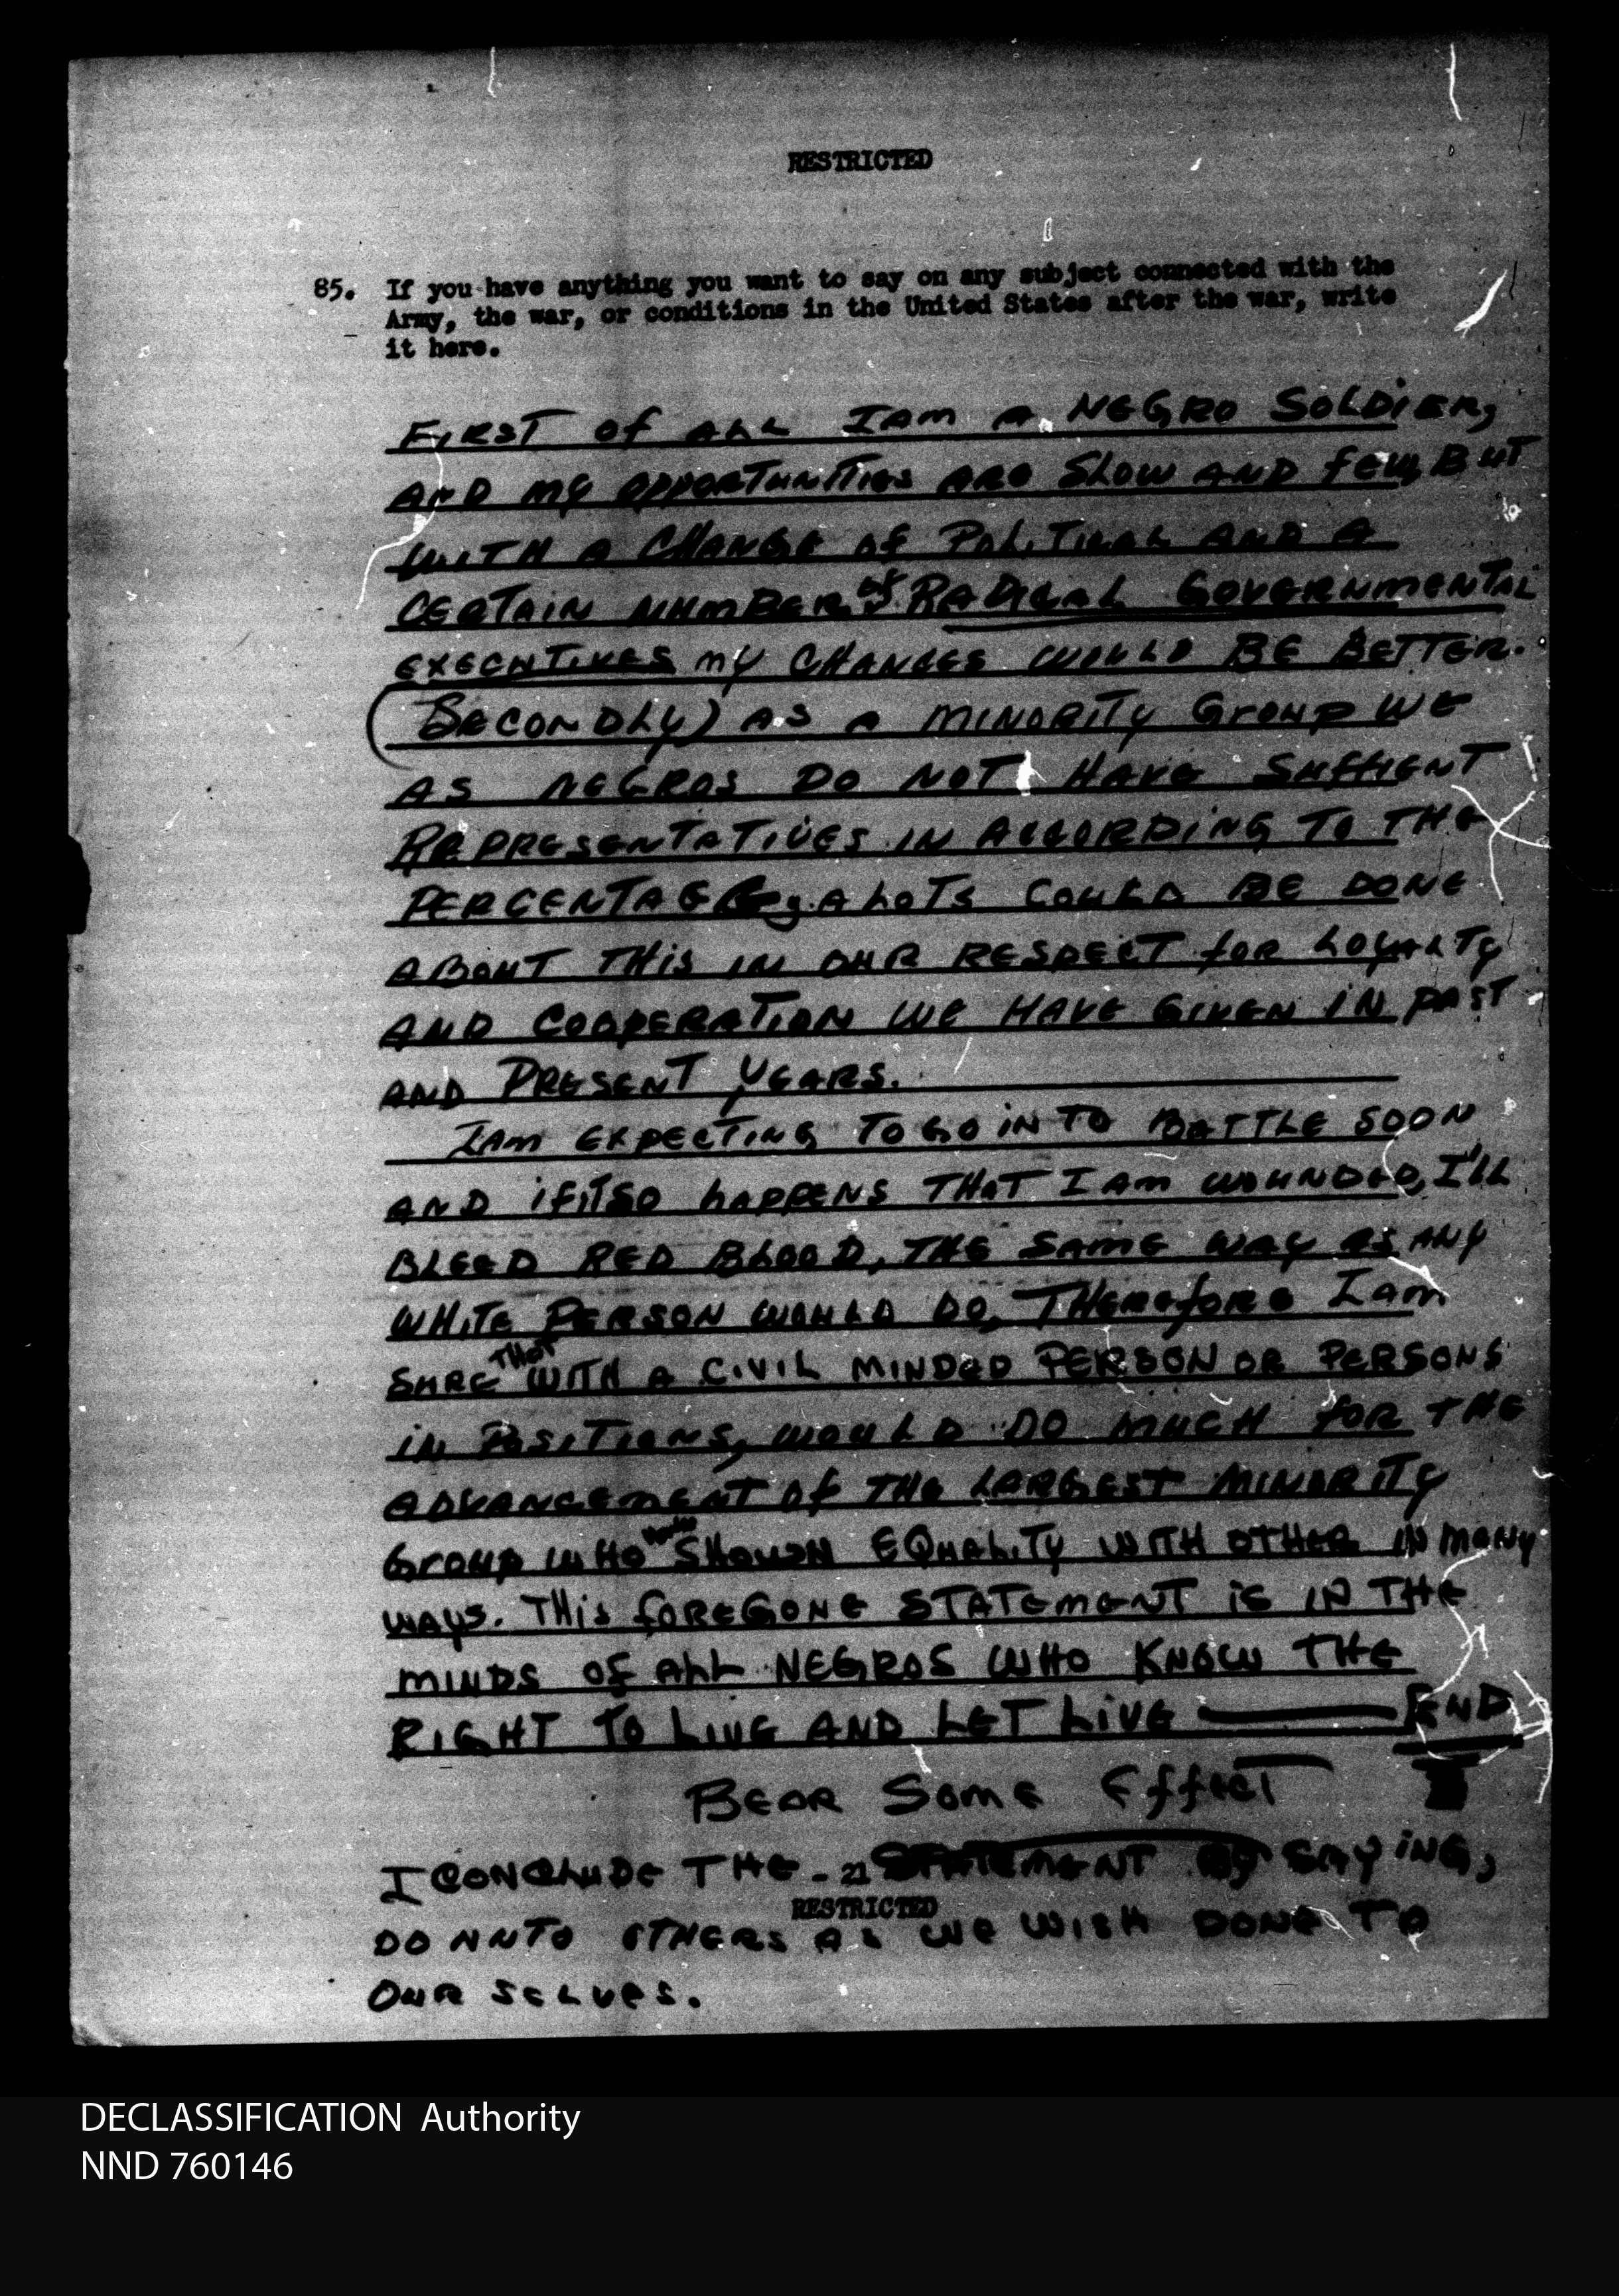 RESTRICTED
85. If you have anything you want to say on any subject connected with the
Army, the war, or conditions in the United States after the war, write
it here.
FIRST of ALL I AM A NEGRO SOLDIER,
AND MY OPPORTUNITIES ARE SLOW AND FEW, BUT
WITH A CHANGE of POLITICAL AND A
CERTAIN NUMBER of RADICAL GOVERNMENTAL
EXECUTIVES MY CHANCES WOULD BE BETTER.
(SECONDLY) AS A MINORITY GROUP WE
AS NEGROS DO NOT HAVE SUFFIENT
REPRESENTATIVES IN ACCORDING TO THE
PERCENTAGE, A LOTS COULD BE DONE
ABOUT THIS IN OUR RESPECT for LOYALTY
AND COOPERATION WE HAVE GIVEN IN PAST
AND PRESENT YEARS.
I AM EXPECTING TO GO IN TO BATTLE SOON
AND if it SO HAPPENS THAT I AM WOUNDED, I'LL
BLEED RED BLOOD, THE SAME WAY AS ANY
WHITE PERSON WOULD DO, THEREfORE I am
SURE THAT WITH A CIVIL MINDED PERSON OR PERSONS
IN POSITIONS, WOULD DO MUCH FOR THE
ADVANCEMENT Of THE LARGEST MINORITY
GROUP WHO SHOWN EQUALITY WITH OTHER IN MANY
WAYS. THIS fOREGONE STATEMENT IS IN THE
MINDS OF ALL NEGROS WHO KNOW THE
RIGHT TO LIVE AND LET LIVE — END
BEAR SOME EffECT
I CONCLUDE THE STATEMENT BY SAYING,
- 21
RESTRICTED
DO UNTO OTHERS AS WE WISH DONE TO
OUR SELVES.
DECLASSIFICATION Authority
NND 760146